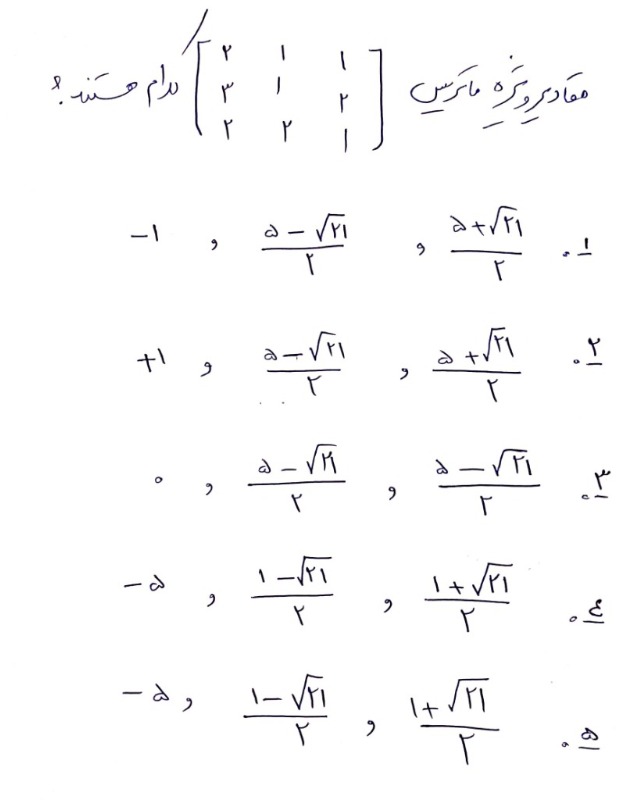 مقادیر ویژه ماتریس [۲ ۱ ۱
۳ ۱ ۲
۲ ۲ ۱] کدام هستند؟
۱. (۵+√۲۱)/۲ , (۵−√۲۱)/۲ , −۱
۲. (۵+√۲۱)/۲ , (۵−√۲۱)/۲ , +۱
۳. (۵−√۲۱)/۲ , (۵−√۲۱)/۲ , ۰
٤. (۱+√۲۱)/۲ , (۱−√۲۱)/۲ , −۵
۵. (۱+√۲۱)/۲ , (۱−√۲۱)/۲ , −۵